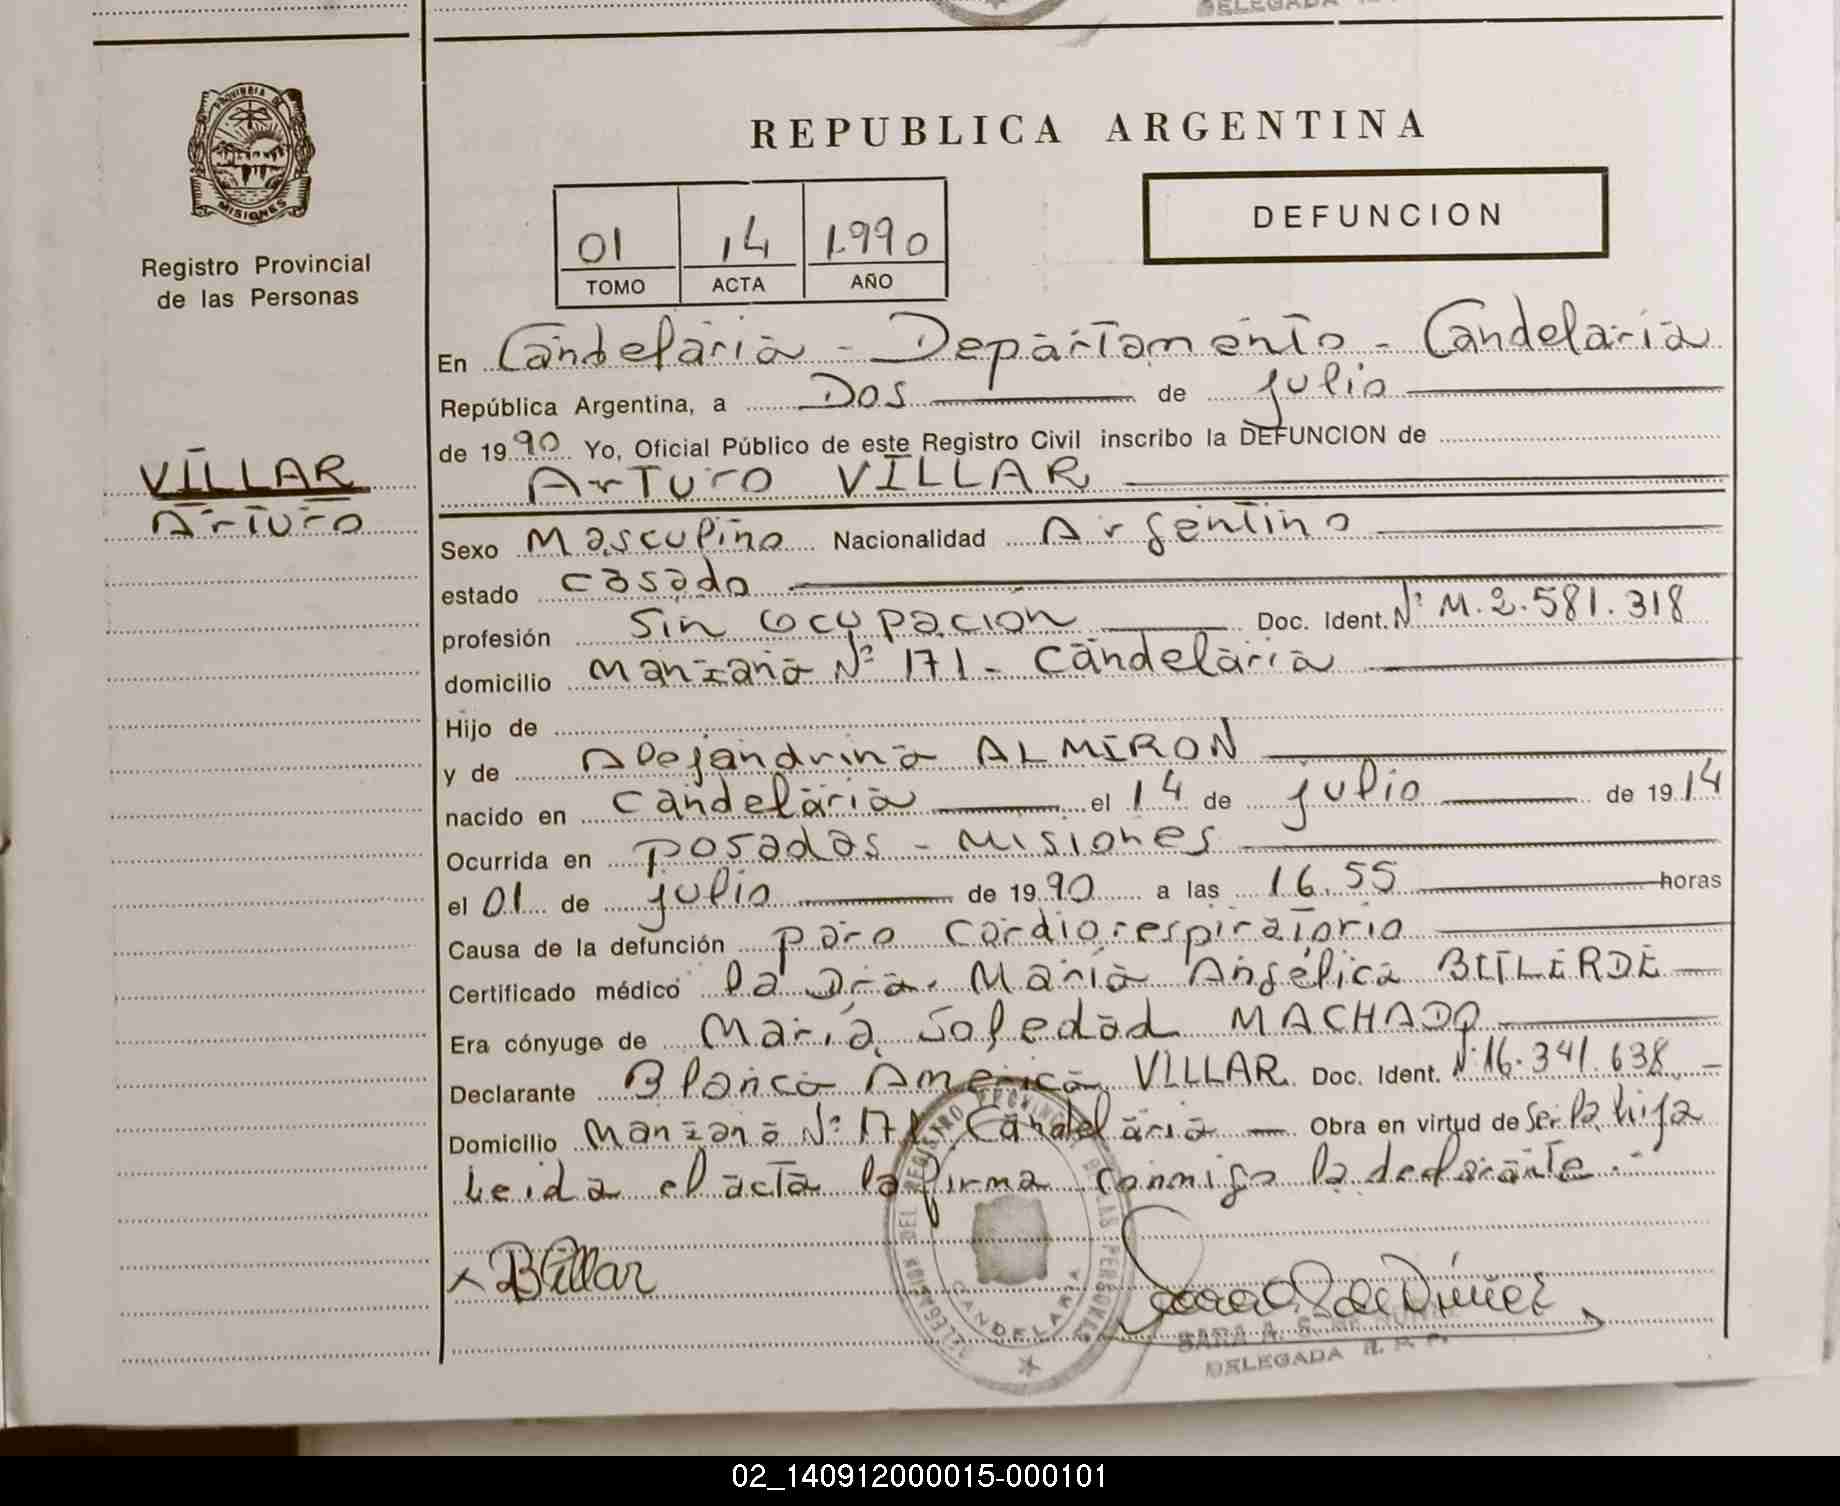 PROVINCIA DE
MISIONES
Registro Provincial
de las Personas
VILLAR
Arturo
DELEGADA
REPUBLICA ARGENTINA
01 14 1.990
TOMO ACTA AÑO
DEFUNCION
En Candelaria - Departamento - Candelaria
República Argentina, a Dos de julio
de 1990 Yo, Oficial Público de este Registro Civil inscribo la DEFUNCION de
Arturo VILLAR
Sexo Masculino Nacionalidad Argentino
estado casado
profesión sin ocupación Doc. Ident. Nº M.2.581.318
domicilio Manzana Nº 171 - Candelaria
Hijo de
y de Alejandrina ALMIRON
nacido en Candelaria el 14 de julio de 1914
Ocurrida en Posadas - Misiones
el 01 de julio de 1990 a las 16.55 horas
Causa de la defunción paro cardiorespiratorio
Certificado médico la Dra. María Angélica
Era cónyuge de María Soledad MACHADO
Declarante Blanca America VILLAR Doc. Ident. Nº 16.341.638 -
Domicilio Manzana Nº 171 Candelaria - Obra en virtud de ser la hija
Leida el acta la firma conmigo la declarante.-
x BVillar
DELEGACION DEL REGISTRO PROVINCIAL DE LAS PERSONAS
CANDELARIA
SARA A. S. DE NUÑEZ
DELEGADA R. P. P.
02_140912000015-000101